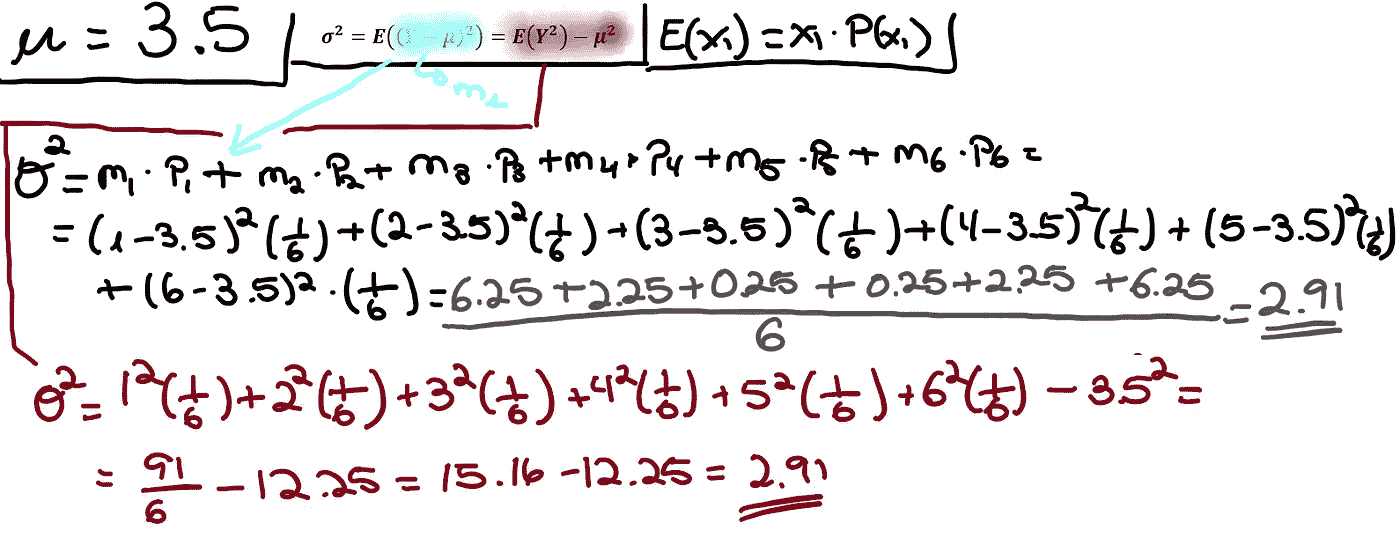 μ = 3.5
σ² = E((Y − μ)²) = E(Y²) − μ²
E(x₁) = x₁ · P(x₁)
σ² = m₁ · P₁ + m₂ · P₂ + m₃ · P₃ + m₄ · P₄ + m₅ · P₅ + m₆ · P₆ =
= (1 − 3.5)² (1/6) + (2 − 3.5)² (1/6) + (3 − 3.5)² (1/6) + (4 − 3.5)² (1/6) + (5 − 3.5)² (1/6)
+ (6 − 3.5)² · (1/6) = (6.25 + 2.25 + 0.25 + 0.25 + 2.25 + 6.25)/6 = 2.91
σ² = 1² (1/6) + 2² (1/6) + 3² (1/6) + 4² (1/6) + 5² (1/6) + 6² (1/6) − 3.5² =
= 91/6 − 12.25 = 15.16 − 12.25 = 2.91